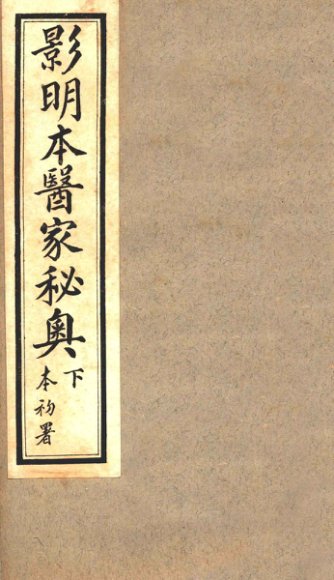 影明本醫家秘奧
下
本初署